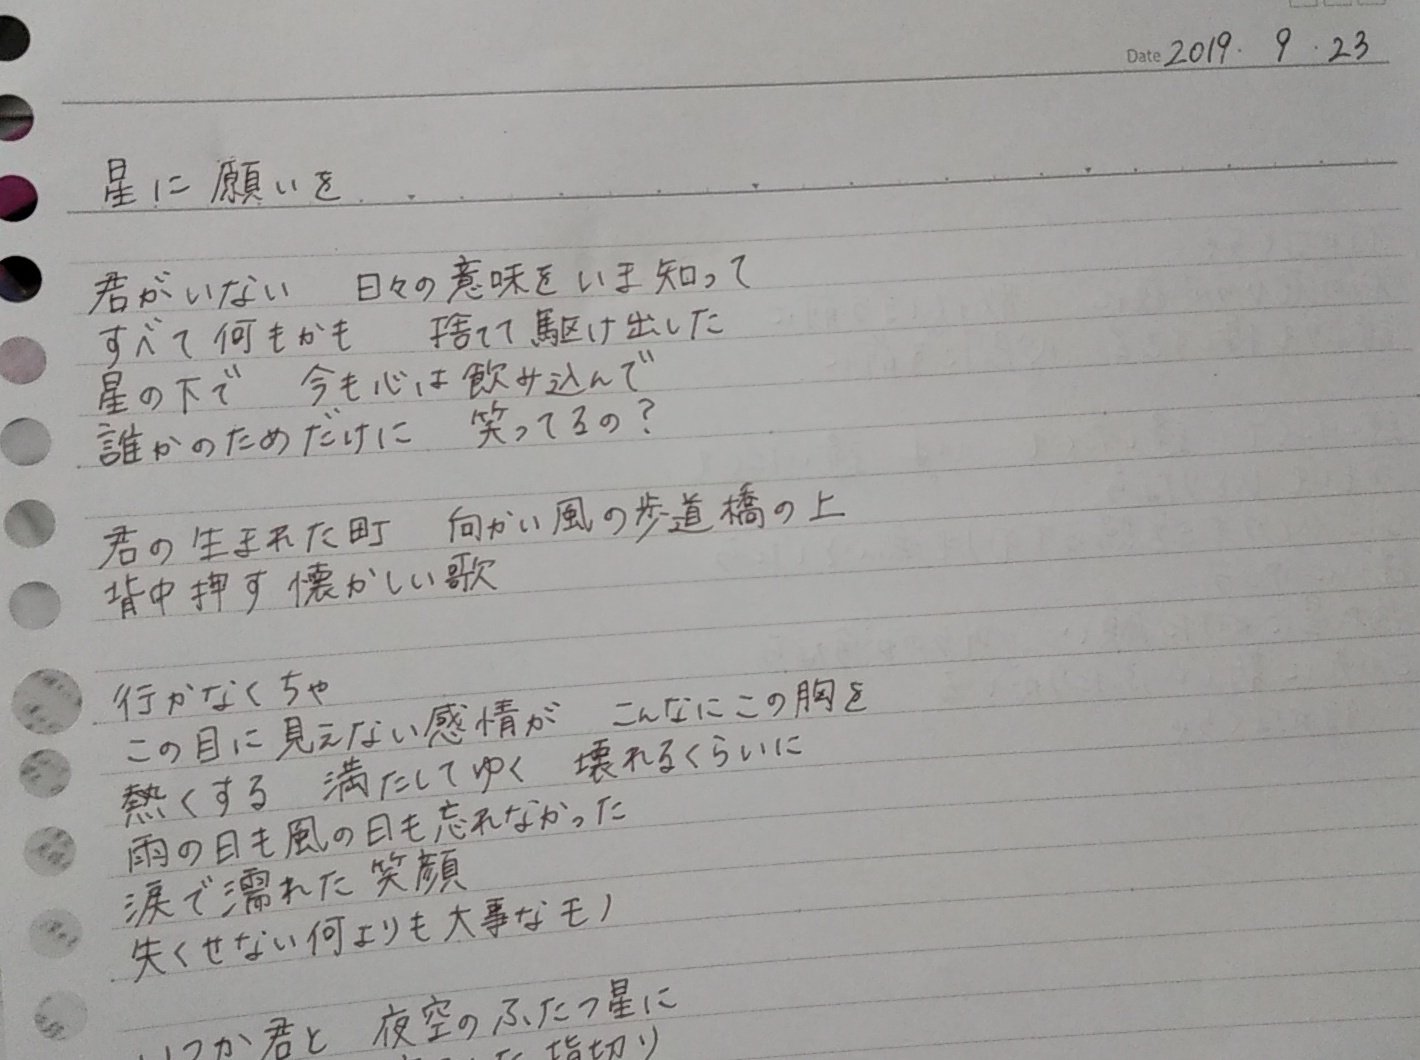 Date 2019. 9. 23
星に願いを
君がいない 日々の意味をいま知って
すべて何もかも 捨てて駆け出した
星の下で 今も心は飲み込んで
誰かのためだけに 笑ってるの?
君の生まれた町 向かい風の歩道橋の上
背中押す懐かしい歌
行かなくちゃ
この目に見えない感情が こんなにこの胸を
熱くする 満たしてゆく 壊れるくらいに
雨の日も風の日も忘れなかった
涙で濡れた笑顔
失くせない何よりも大事なモノ
いつか君と 夜空のふたつ星に
指切り